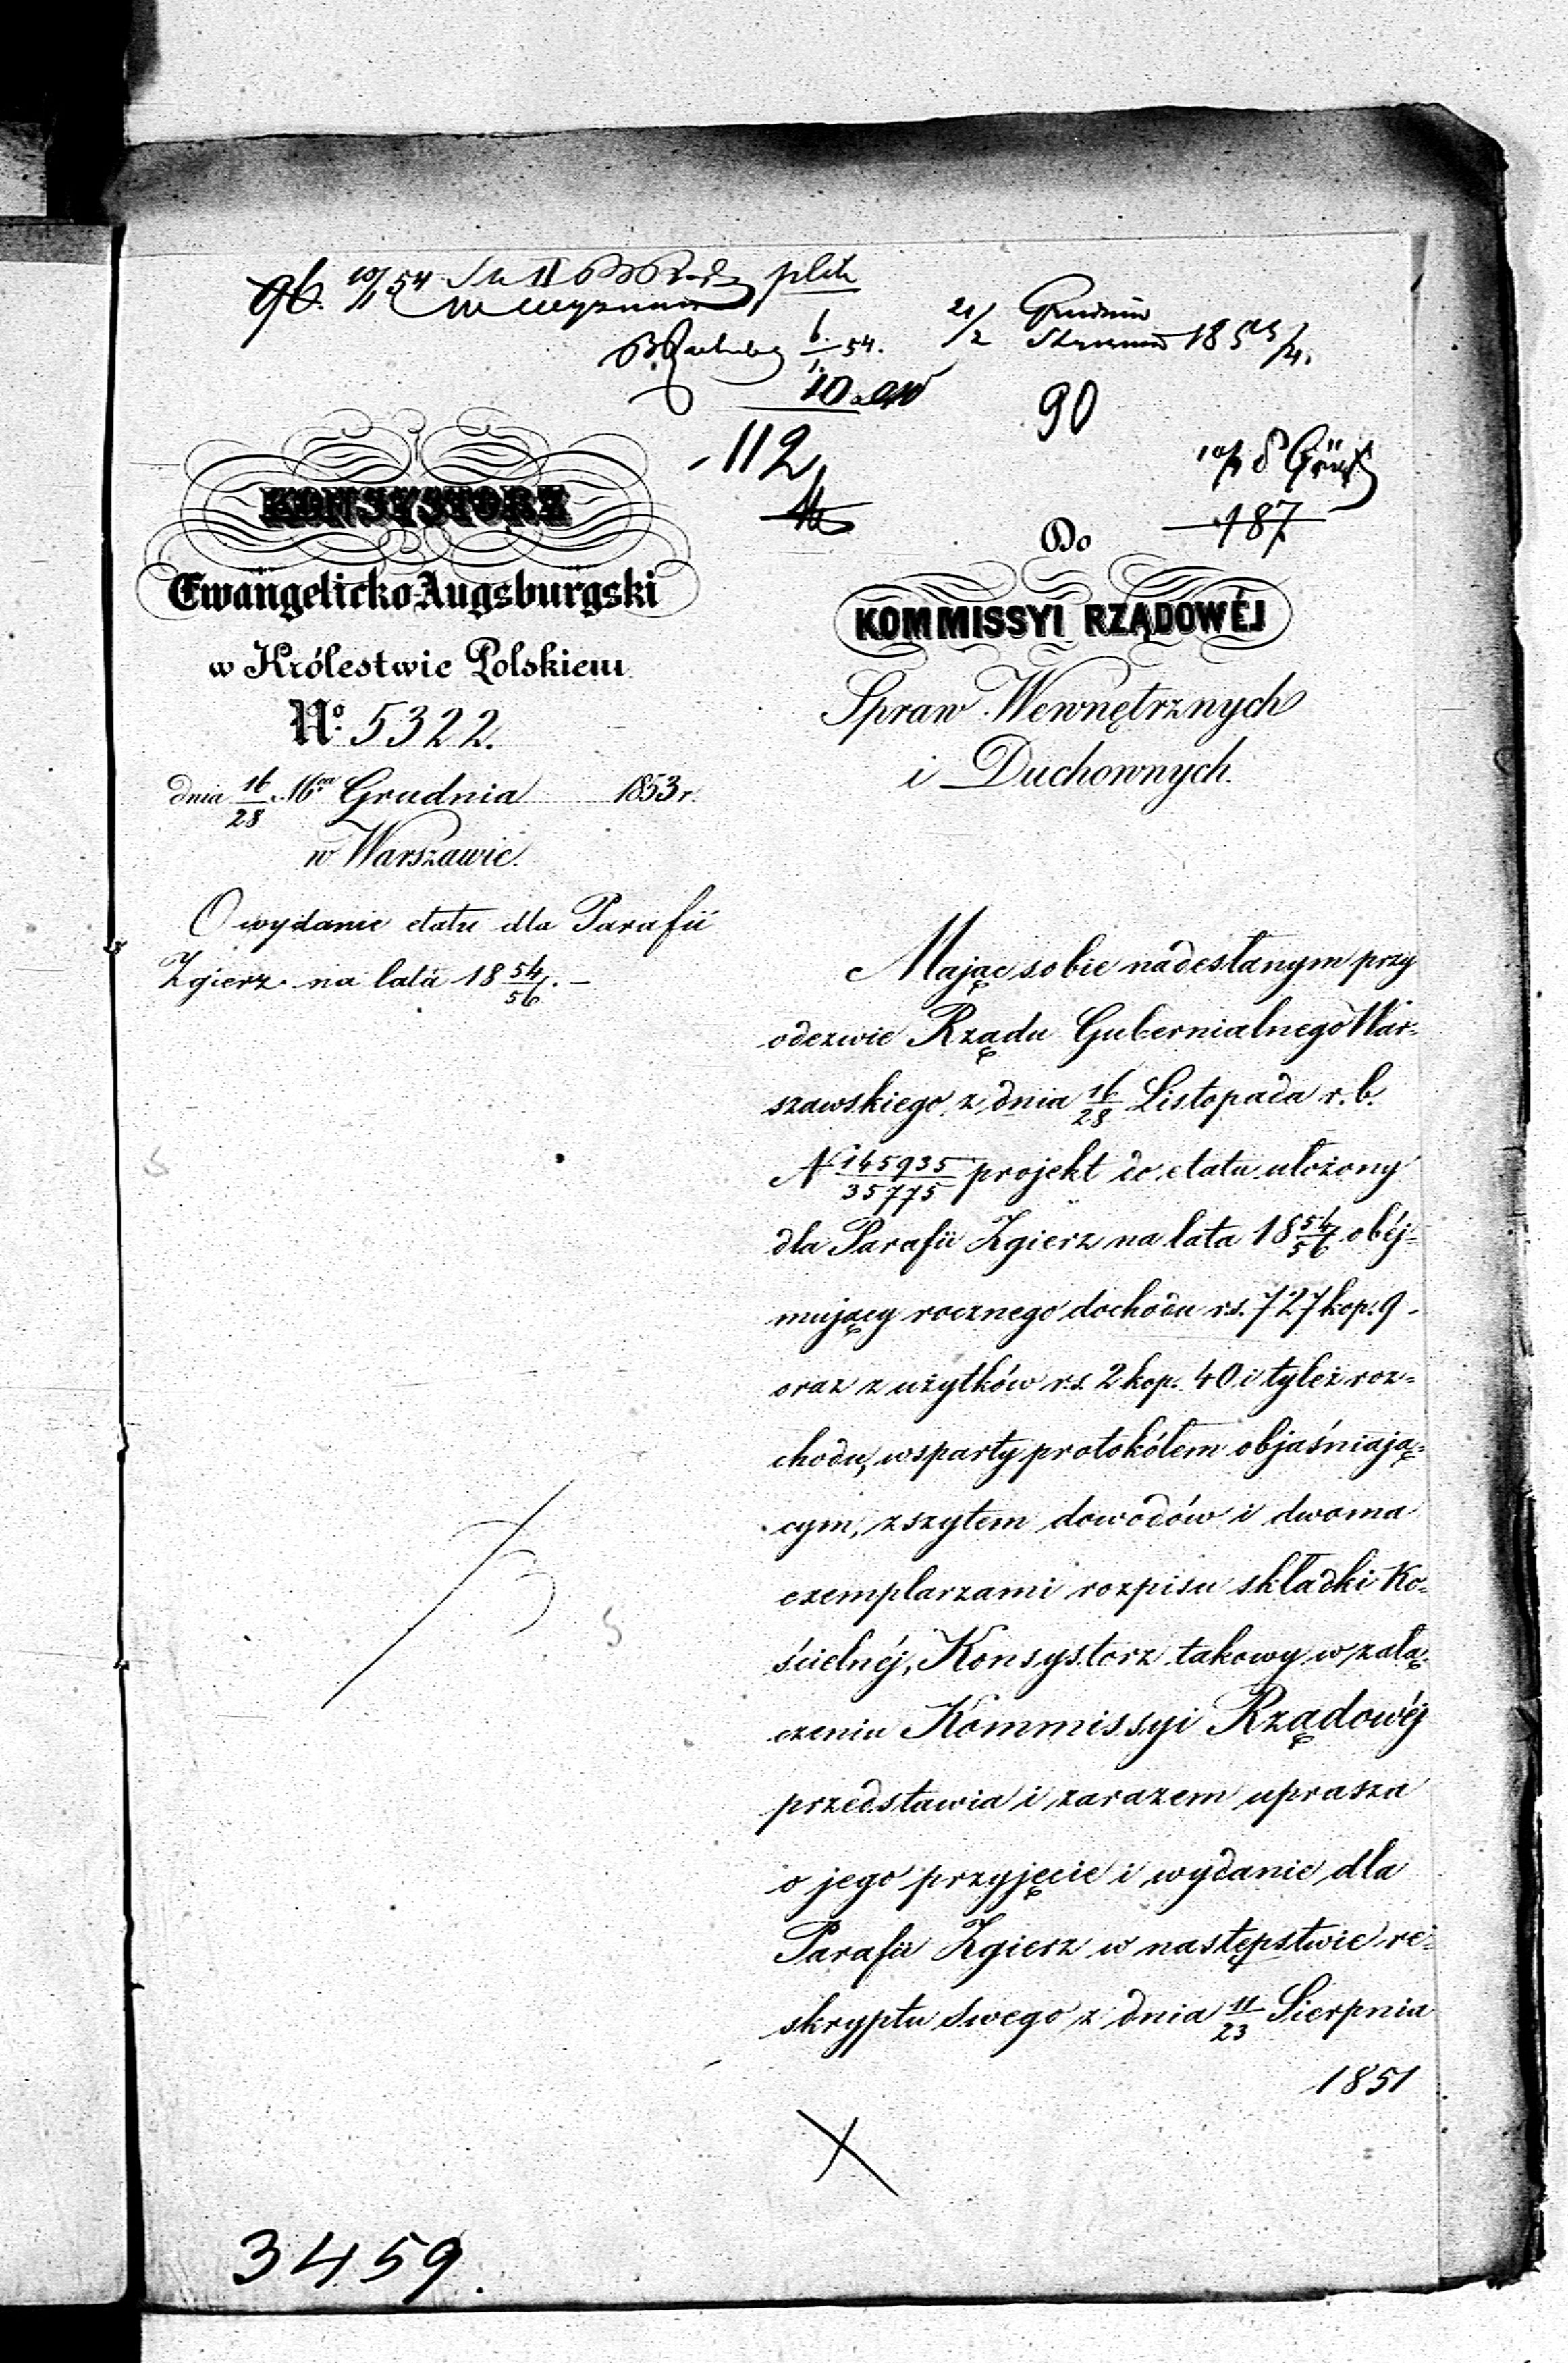 96. 10/1 54
plik
6/1 54.
21/2 Grudnia
Stycznia 18 53/4.
10
90
112
187
KONSYSTORZ
Ewangelicko-Augsburgski
w Królestwie Polskiem
No. 5322.
dnia 16/28 Grudnia 1853 r.
w Warszawie.
O wydanie etatu dla Parafii
Zgierz na lata 18 54/56. –
Do
KOMMISSYI RZĄDOWÉJ
Spraw Wewnętrznych
i Duchownych.
Mając sobie nadesłanym przy
odezwie Rządu Gubernialnego War-
szawskiego z dnia 16/28 Listopada r. b.
N 145935/35775 projekt do etatu ułożony
dla Parafii Zgierz na lata 18 54/56 obéj-
mujący rocznego dochodu rs. 727 kop. 9 –
oraz z użytków rs. 2 kop. 40 i tyleż roz-
chodu, wsparty protokółem objaśniają-
cym, zszytem dowodów i dwoma
exemplarzami rozpisu składki Ko-
ścielnéj, Konsystorz takowy w załą-
czeniu Kommissyi Rządowéj
przedstawia i zarazem uprasza
o jego przyjęcie i wydanie dla
Parafii Zgierz w następstwie re-
skryptu swego z dnia 11/23 Sierpnia
1851
3459.